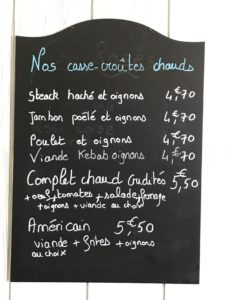 Nos casse-croûtes chauds
Steack haché et oignons 4,€70
Jambon poêlé et oignons 4,€70
Poulet et oignons 4,€70
Viande Kebab oignons 4,€70
Complet chaud crudités 5,€50
+ oeufs + tomates + salade + fromage
+ oignons + viande au choix
Américain 5,€50
viande + frites + oignons
au choix